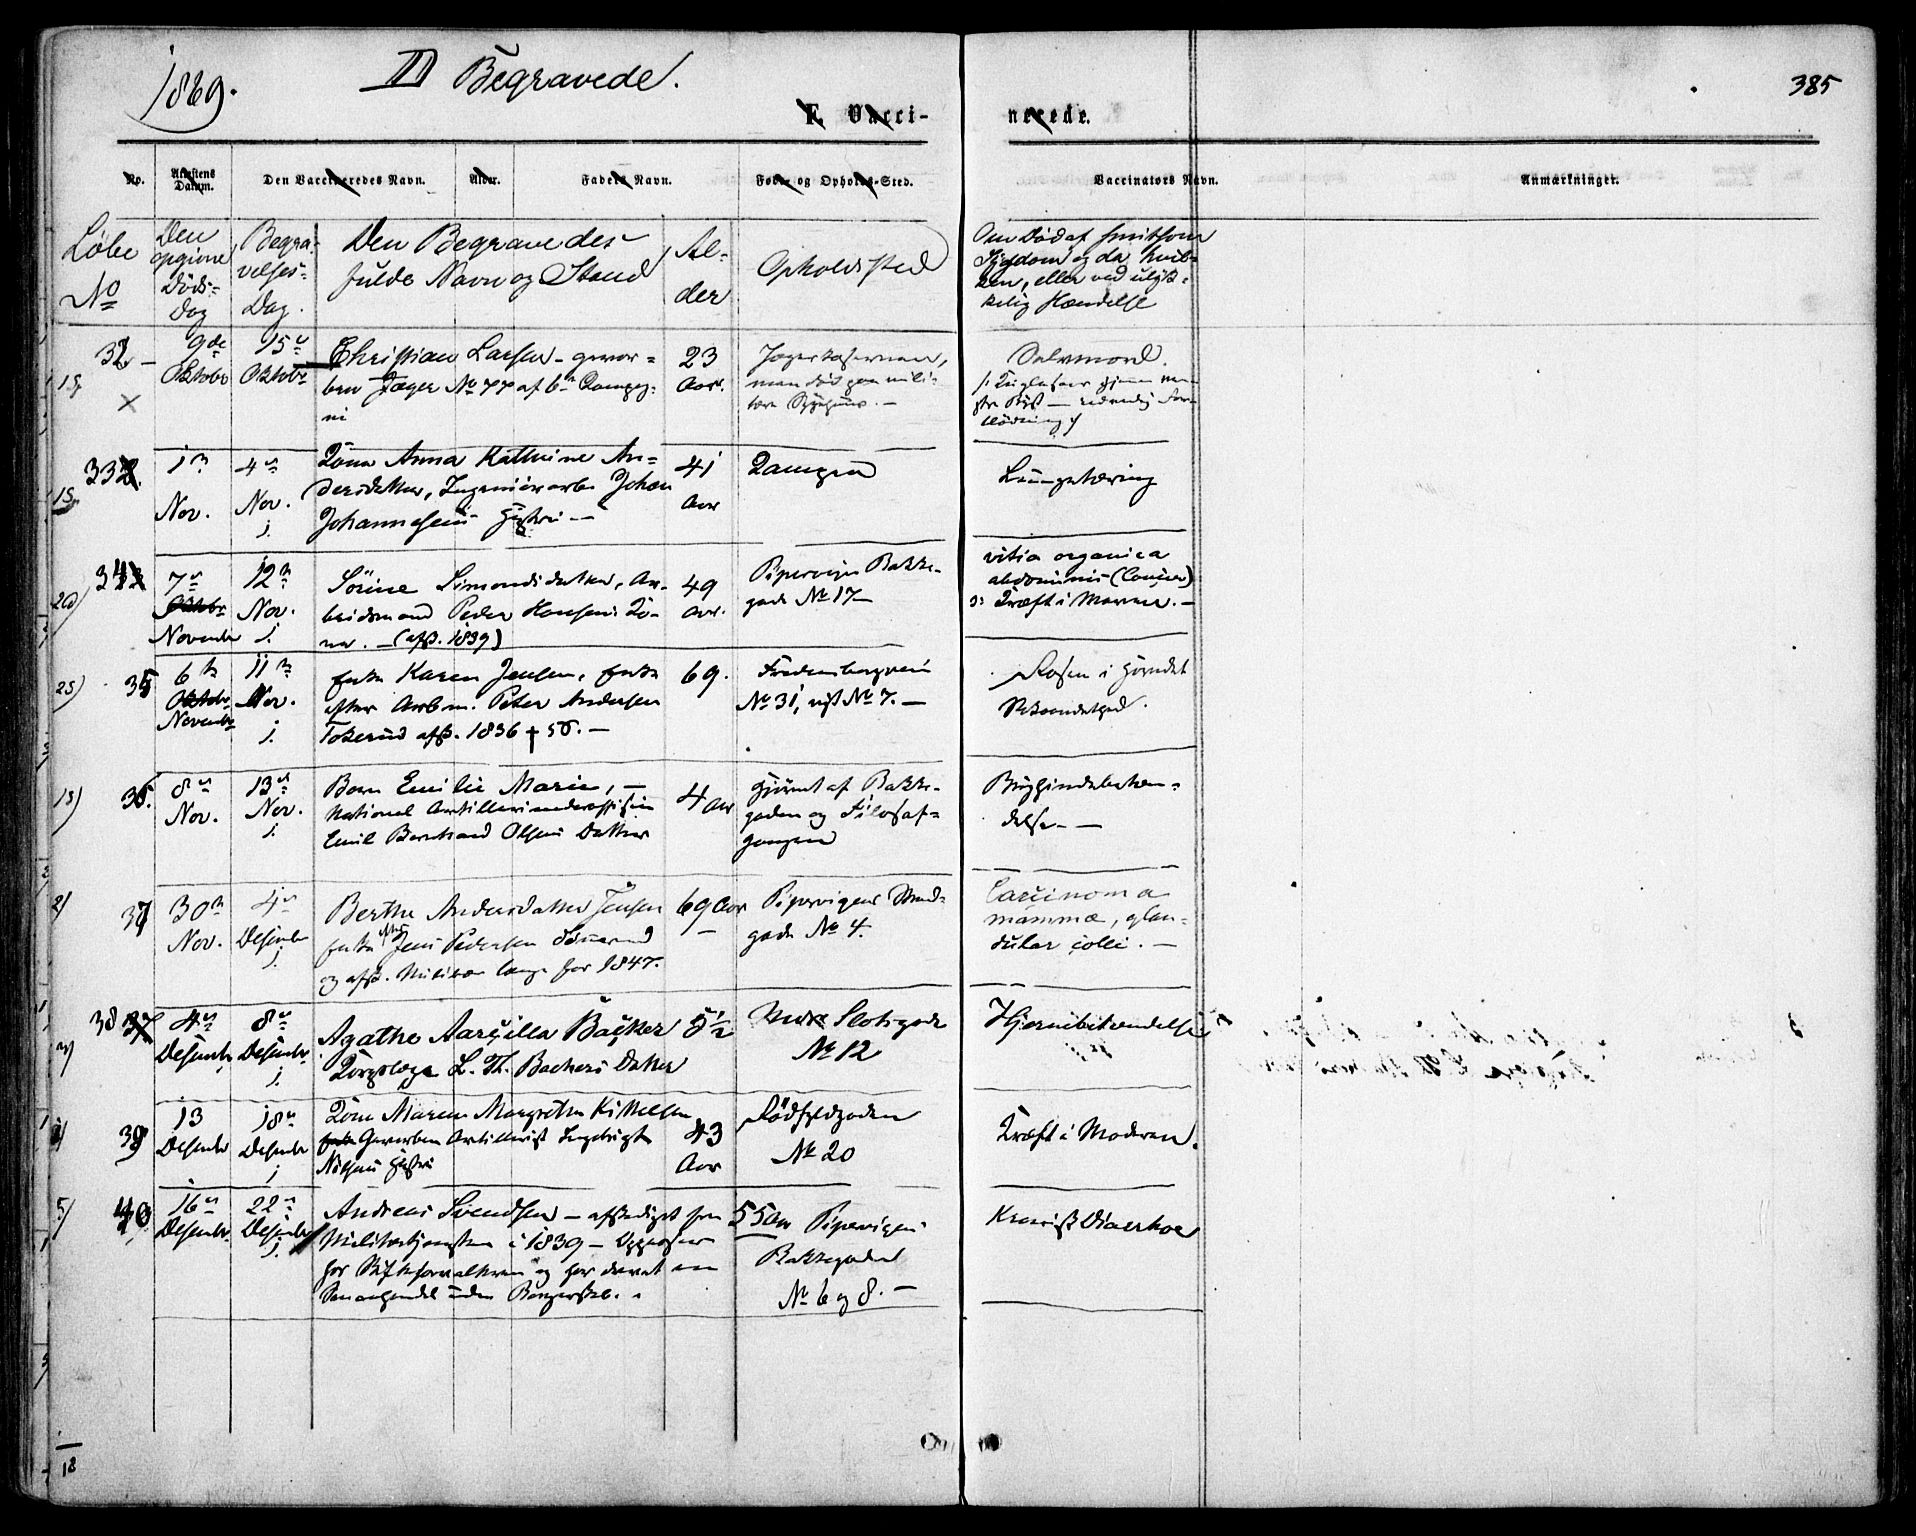 1869. III Begravede. 385
F. Vacci- nerede.
No. Attestens Datum. Den Vaccineredes Navn. Alder. Faders Navn. Føde- og Opholds-Sted. Vaccinators Navn. Anmærkninger.
Løbe No
Den opgivne Døds- Dag
Begra- velses- Dag.
Den Begravedes fulde Navn og Stand
Al- der
Opholdssted
Om Død af smitsom
Sygdom og da hvil-
ken, eller ved ulyk-
kelig Hændelse
32 9de Oktober 15de Oktober
Christian Larsen - gevor-
ben Jæger No 77 af 6te Compag-
ni
23 Aar.
Jægerkasernen,
men død paa mili-
tære Sygehus. -
Selvmord.
33 1ste Nov. 4de Nov. j.
Kone Anna Kathrine An-
dersdatter, Ingeniørarb. Johan
Johannesens Hustru -
41 Aar
Kampen
Lungetæring
34 7de November 12te Nov. j.
Sørine Simensdatter, Ar-
beidsmand Peder Hansens Ko-
ne. - (afsk. 1839)
49 Aar.
Pipervigens Bakke-
gade No 17 -
vitia organica
abdominis (Cancer)
ɔ: Kræft i Maven. -
35 6te November 11te Nov. j.
Enke Karen Jensen, Enke
efter Arbm. Peter Andersen
Tokerud afsk. 1836 † 56. -
69.
No 31, nyt No 7. -
Rosen i Hovedet
36. 8de Nov. 13de Nov. j.
Barn Emilie Marie, -
National Artilleriunderofficier
Emil Bernhard Olsens Datter
4 Aar
Hjørnet af Bakke-
gaden og Filosof-
gangen
37 30te Nov. 4de Desember j.
Berthe Andersdatter Jensen
Enke efter Jens Pedersen
og afsk. Militær længe før 1847.
69 Aar
Pipervigens Strand-
gade No 4.
Carcinoma
mammæ, glan-
dular colli. -
38 4de Desember 8de Desember j.
Agathe Aarsilla Backer
Korpslæge L. Th. Backers Datter
5½
Slotsgade
No 12
Hjernebetændelse
39 13 Desember 18de Desember j.
Kone Maren Margrethe Kittelsen
Gevorben Artillerist Ingebrigt
Nilsens Hustru
43 Aar
Rødfyldgaden
No 20
Kræft i Moderen.
40 16de Desember 22de Desember j.
Andreas Svendsen - afskediget fra
Militærtjenesten i 1839 - Oppasser
55 Aar
Pipervigens
Bakkegaden
No 6 og 8. -
Kronisk Diaerhoe
18